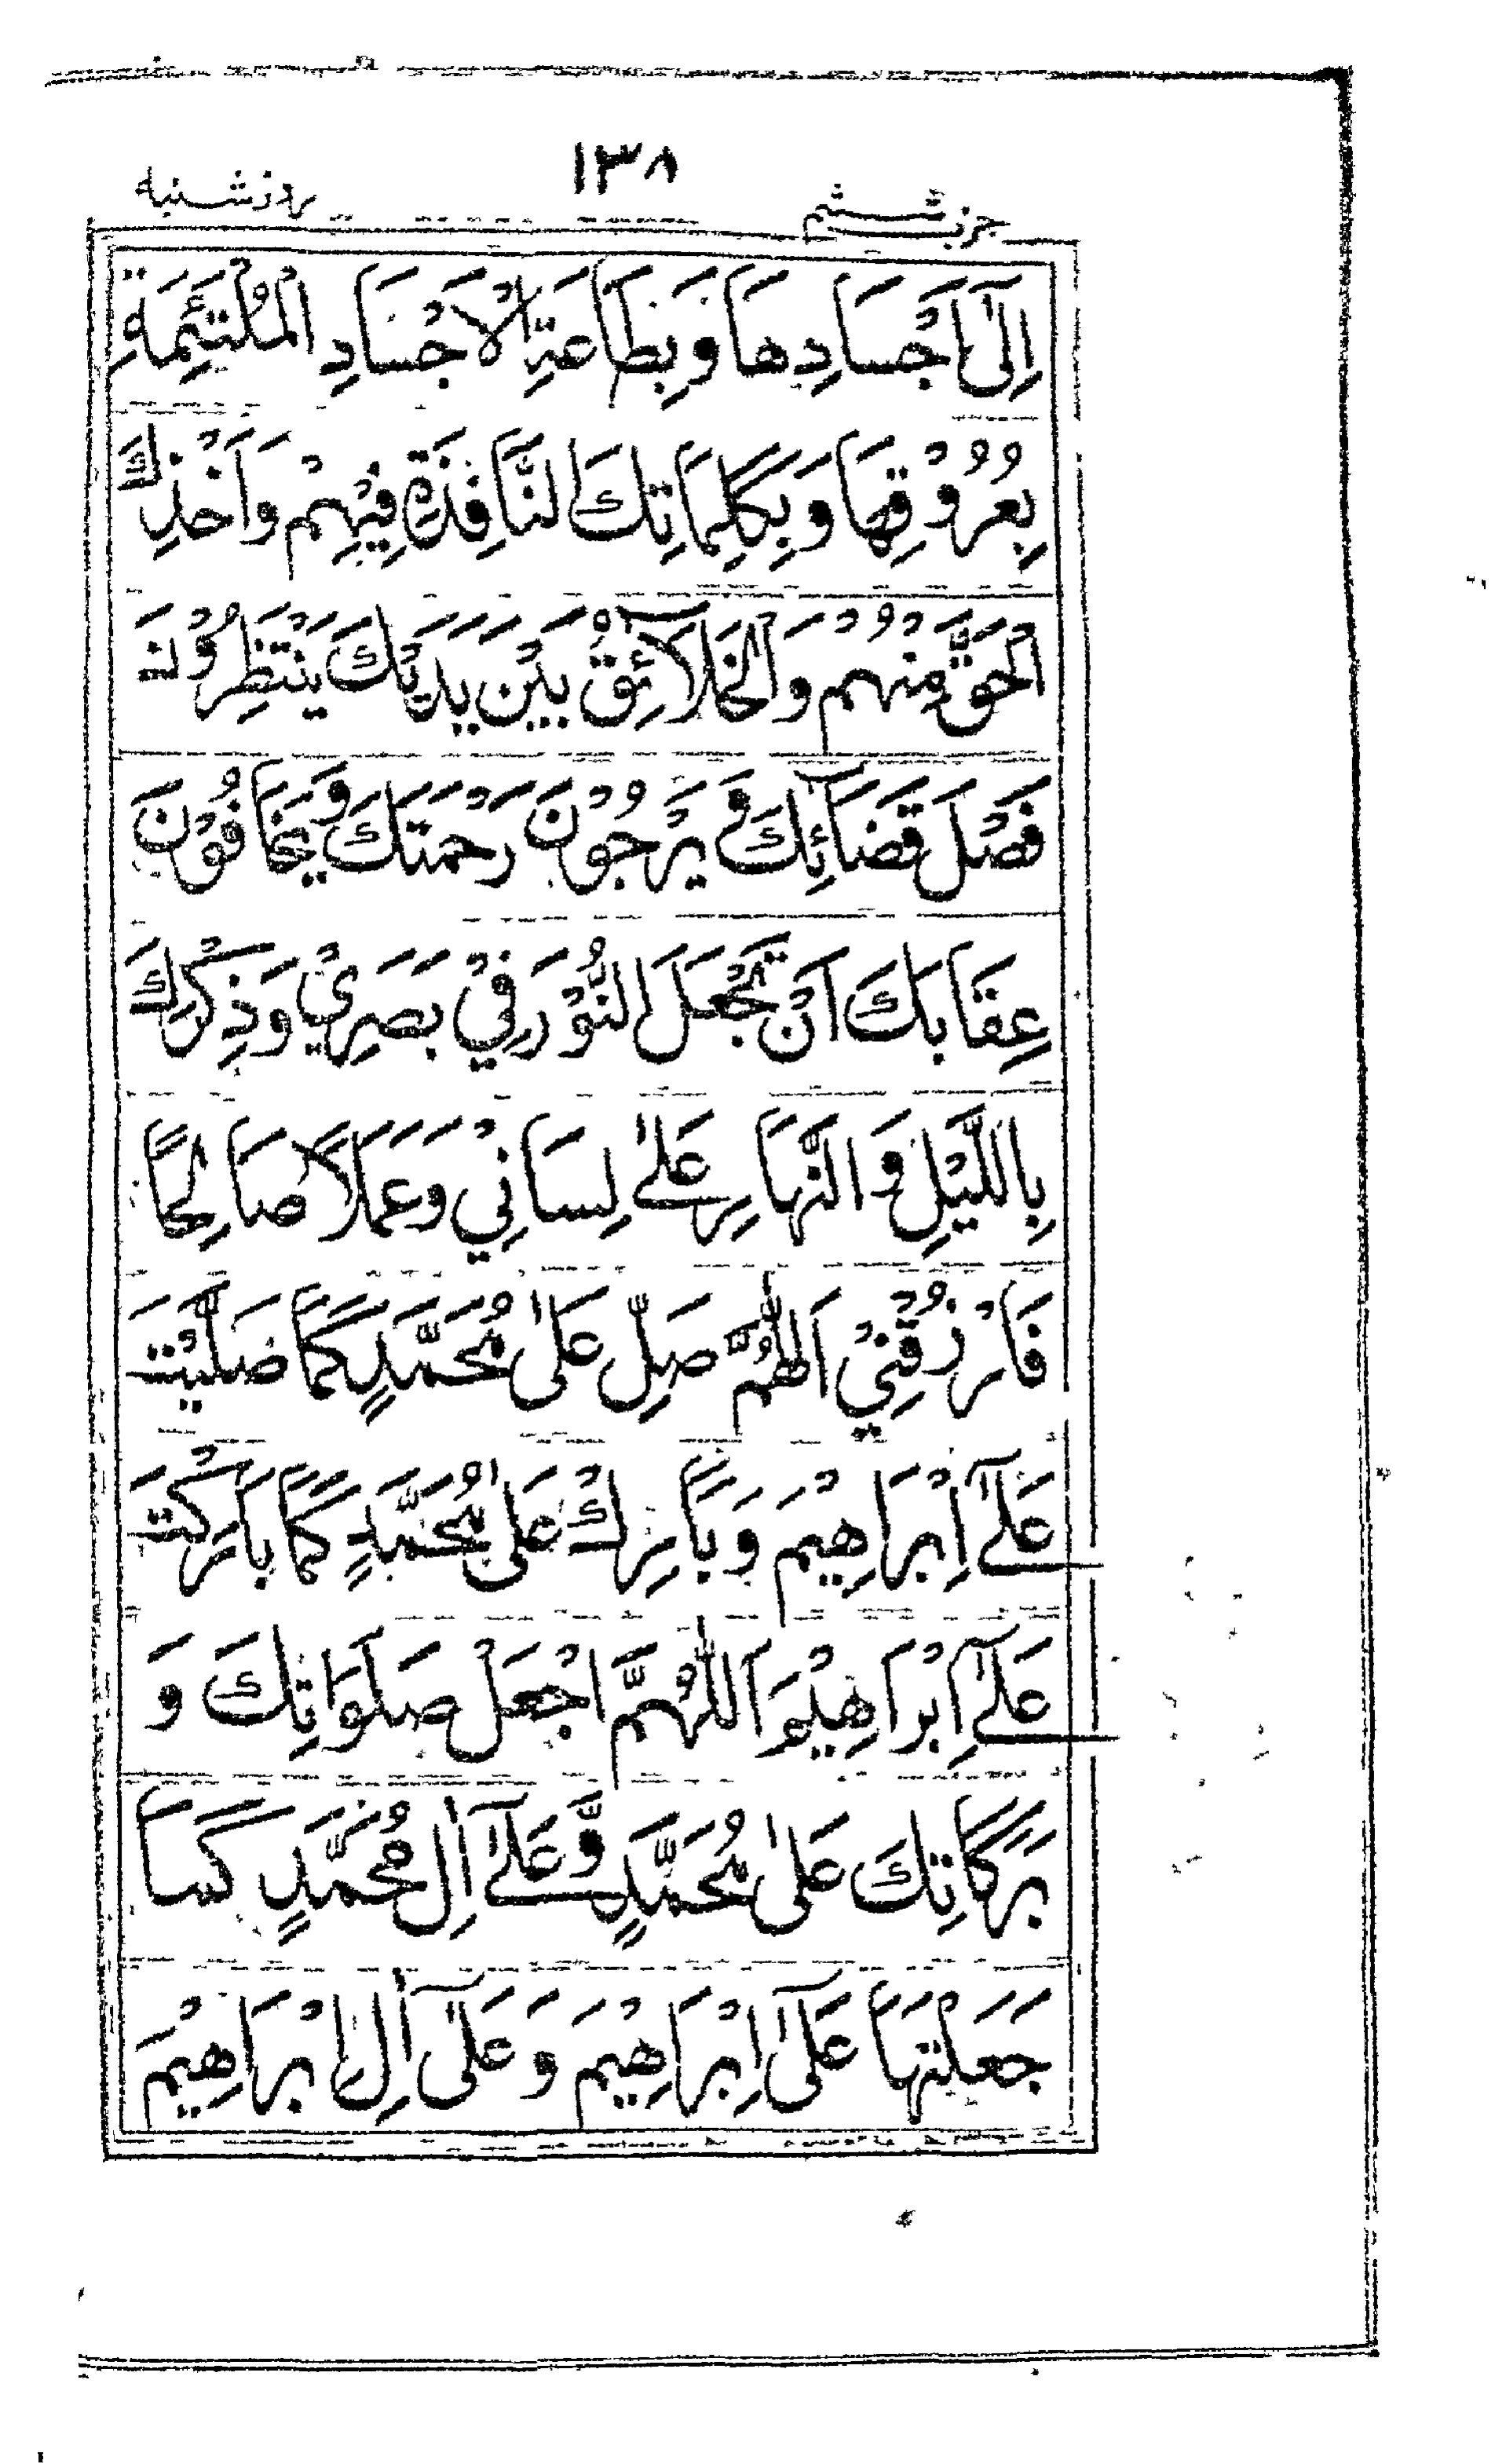 حزب ششم ١٣٨ روز شنبه
اِلٰٓى اَجْسَادِهَا وَبِطَاعَةِ الْاَجْسَادِ الْمُلْتَئِمَةِ
بِعُرُوْقِهَا وَبِكَلِمَاتِكَ النَّافِذَةِ فِيْهِمْ وَاَخْذِكَ
الْحَقَّ مِنْهُمْ وَالْخَلَآئِقُ بَيْنَ يَدَيْكَ يَنْتَظِرُوْنَ
فَصْلَ قَضَآئِكَ وَ يَرْجُوْنَ رَحْمَتَكَ وَيَخَافُوْنَ
عِقَابَكَ اَنْ تَجْعَلَ النُّوْرَ فِيْ بَصَرِيْ وَذِكْرَكَ
بِاللَّيْلِ وَالنَّهَارِ عَلٰى لِسَانِيْ وَعَمَلًا صَالِحًا
فَارْزُقْنِيْ اَللّٰهُمَّ صَلِّ عَلٰى مُحَمَّدٍ كَمَا صَلَّيْتَ
عَلٰٓى اِبْرَاهِيْمَ وَبَارِكْ عَلٰى مُحَمَّدٍ كَمَا بَارَكْتَ
عَلٰٓى اِبْرَاهِيْمَ اَللّٰهُمَّ اجْعَلْ صَلَوَاتِكَ وَ
بَرَكَاتِكَ عَلٰى مُحَمَّدٍ وَّعَلٰٓى اٰلِ مُحَمَّدٍ كَمَا
جَعَلْتَهَا عَلٰٓى اِبْرَاهِيْمَ وَعَلٰٓى اٰلِ اِبْرَاهِيْمَ